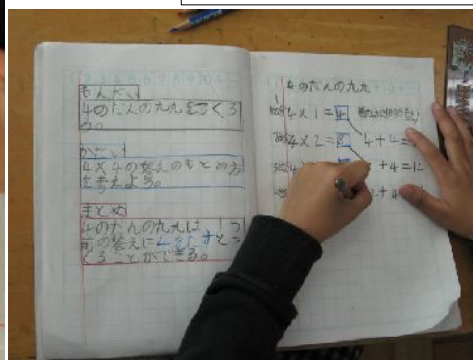 もんだい
4のだんの九九をつくろ
う。
かだい
4×4の答えのもとめ方
を考えよう。
まとめ
4のだんの九九は、1つ
前の答えに4をたすとつ
くることができる。
4のだんの九九
4×1=4
4×2=8 4+4=
+4=12
+4